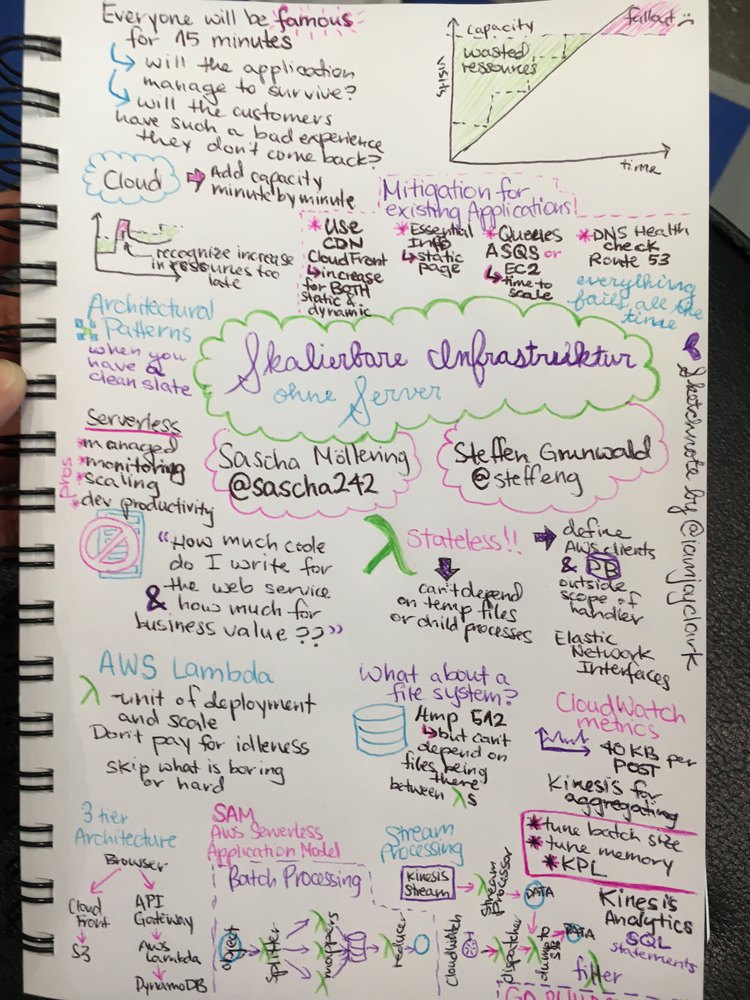 Everyone will be famous
for 15 minutes
will the application
manage to survive?
will the customers
have such a bad experience
they don't come back?
capacity
fallout
wasted
ressources
visits
time
Cloud
Add capacity
minute by minute
recognize increase
in ressources too
late
Mitigation for
existing Applications
* Use
CDN
CloudFront
increase
for BOTH
static &
dynamic
* Essential
Info
static
page
* Queues
ASQS or
EC2
time to
scale
* DNS Health
check
Route 53
everything
fails all the
time
Architectural
Patterns
when you
have a
clean slate
Skalierbare Infrastruktur
ohne Server
Sascha Möllering
@sascha242
Steffen Grunwald
@steffeng
Sketchnote by @iamjayclark
Serverless
Pros
* managed
* monitoring
* scaling
* dev productivity
"How much code
do I write for
the web service
& how much for
business value??"
λ Stateless!!
can't depend
on temp files
or child processes
define
AWS clients
& DB
outside
scope of
handler
Elastic
Network
Interfaces
AWS Lambda
λ -unit of deployment
and scale
Don't pay for idleness
skip what is boring
or hard
What about a
file system?
/tmp 512
but can't
depend on
files being
there
between λs
CloudWatch
metrics
40 KB per
POST
Kinesis for
aggregating
* tune batch size
* tune memory
* KPL
3 tier
Architecture
Browser
Cloud
Front
S3
API
Gateway
AWS
Lambda
DynamoDB
SAM
AWS Serverless
Application Model
Batch Processing
object
splitter
λ
λ
λ
mappers
λ
reducer
Stream
Processing
Kinesis
Stream
λ
Stream
Processor
DATA
CloudWatch
dispatcher
dump to
S3
DATA
Kinesis
Analytics
SQL
statements
filter